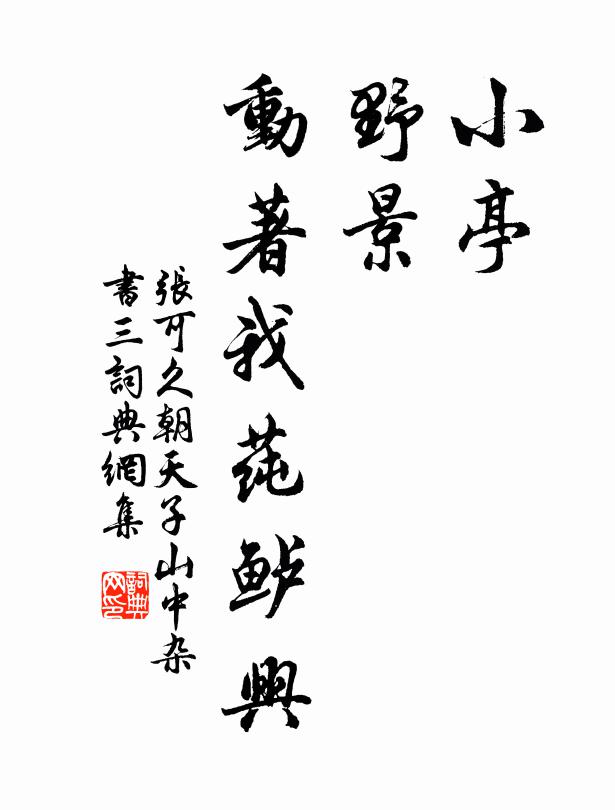 小亭
野景
動著我莼鲈興
張可久朝天子山中杂
書三詞典網集
詞典网印